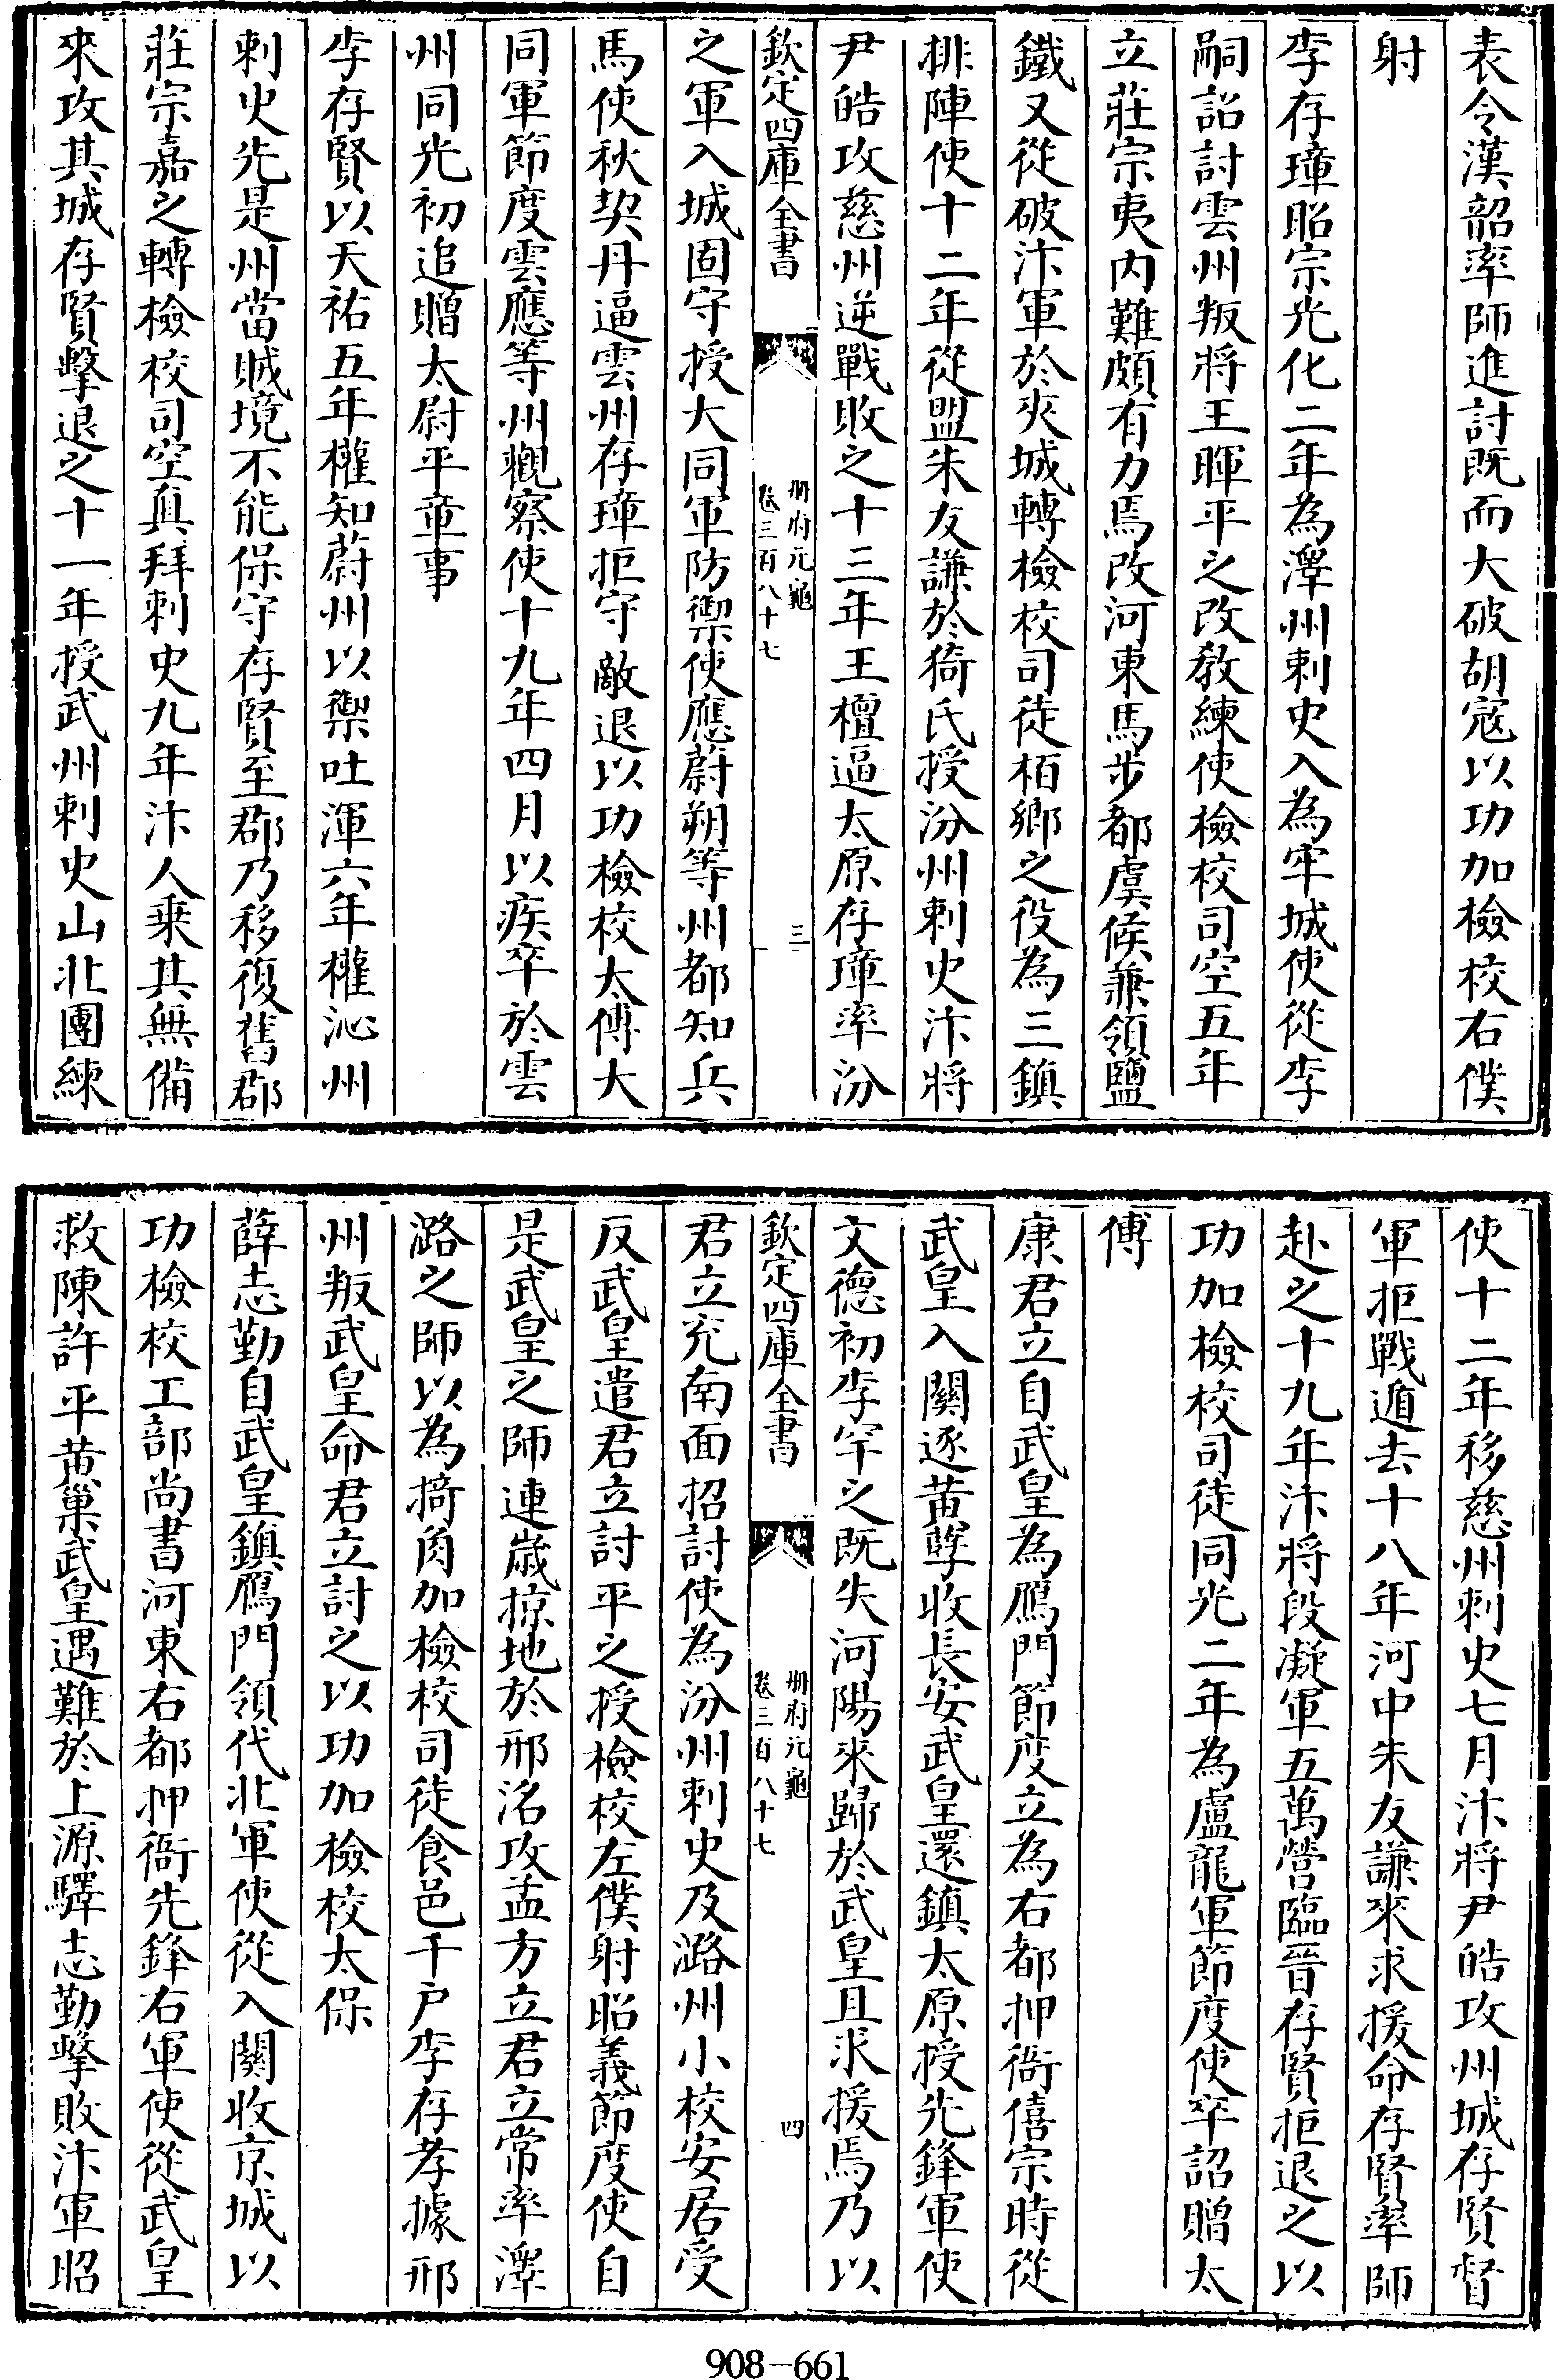 表令漢韶率師進討既而大破胡寇以功加檢校右僕
射
李存璋昭宗光化二年為澤州刺史入為牢城使從李
嗣詔討雲州叛將王暉平之改教練使檢校司空五年
立莊宗夷内難頗有力焉改河東馬步都虞候兼領鹽
鐵又從破汴軍於夾城轉檢校司徒栢鄉之役為三鎮
排陣使十二年從盟朱友謙於猗氏授汾州刺史汴將
尹皓攻慈州逆戰敗之十三年王檀逼太原存璋率汾
欽定四庫全書
冊府元龜
卷三百八十七
三
之軍入城固守授大同軍防禦使應蔚朔等州都知兵
馬使秋契丹逼雲州存璋拒守敵退以功檢校太傅大
同軍節度雲應等州觀察使十九年四月以疾卒於雲
州同光初追贈太尉平章事
李存賢以天祐五年權知蔚州以禦吐渾六年權沁州
刺史先是州當賊境不能保守存賢至郡乃移復舊郡
莊宗嘉之轉檢校司空真拜刺史九年汴人乘其無備
來攻其城存賢擊退之十一年授武州刺史山北團練
使十二年移慈州刺史七月汴將尹皓攻州城存賢督
軍拒戰遁去十八年河中朱友謙來求援命存賢率師
赴之十九年汴將段凝軍五萬營臨晉存賢拒退之以
功加檢校司徒同光二年為盧龍軍節度使卒詔贈太
傅
康君立自武皇為鴈門節度立為右都押衙僖宗時從
武皇入關逐黄孽收長安武皇還鎮太原授先鋒軍使
文德初李罕之既失河陽來歸於武皇且求援焉乃以
欽定四庫全書
冊府元龜
卷三百八十七
四
君立充南面招討使為汾州刺史及潞州小校安居受
反武皇遣君立討平之授檢校左僕射昭義節度使自
是武皇之師連歲掠地於邢洺攻孟方立君立常率澤
潞之師以為掎角加檢校司徒食邑千户李存孝據邢
州叛武皇命君立討之以功加檢校太保
薛志勤自武皇鎮鴈門領代北軍使從入關收京城以
功檢校工部尚書河東右都押衙先鋒右軍使從武皇
救陳許平黄巢武皇遇難於上源驛志勤擊敗汴軍昭
908-661